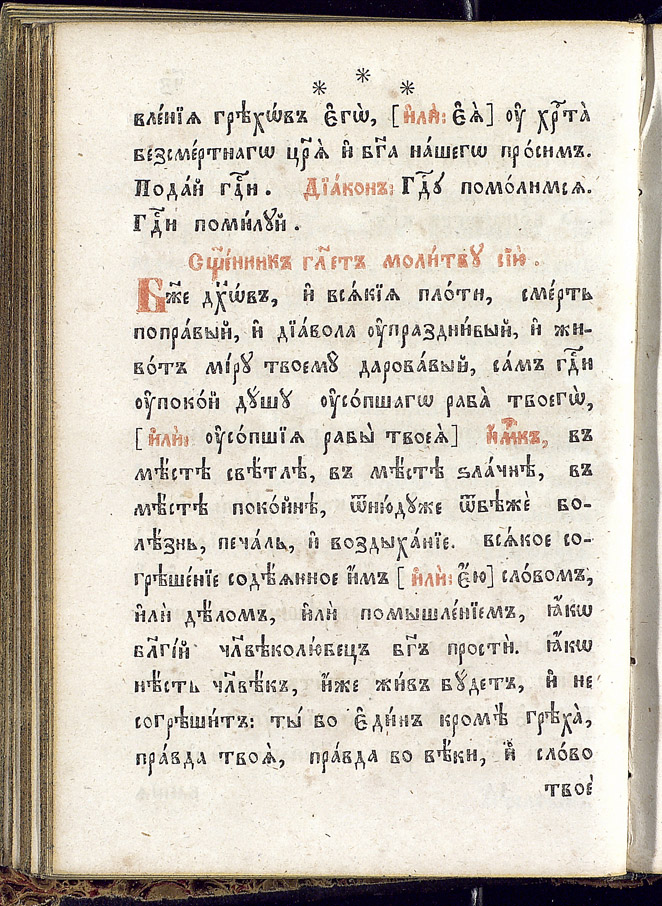 * * *
вле́нїѧ грѣхѡ́въ є҆гѡ̀, [и҆лѝ: є҆ѧ̀] ᲂу҆ хрⷭ҇та̀
безсме́ртнагѡ цр҃ѧ̀ и҆ бг҃а на́шегѡ про́симъ.
Пода́й гдⷭ҇и. Дїа́конъ: Гдⷭ҇ꙋ помо́лимсѧ.
Гдⷭ҇и поми́лꙋй.
Сщ҃е́нникъ гл҃етъ моли́твꙋ сїю̀.
Бж҃е дꙋхѡ́въ, и҆ всѧ́кїѧ пло́ти, сме́рть
попра́вый, и҆ дїа́вола ᲂу҆праздни́вый, и҆ жи-
во́тъ мі́рꙋ твоемꙋ̀ дарова́вый, са́мъ гдⷭ҇и
ᲂу҆поко́й дꙋ́шꙋ ᲂу҆со́пшагѡ раба̀ твоегѡ̀,
[и҆лѝ: ᲂу҆со́пшїѧ рабы̀ твоеѧ̀] и҆́м҃къ, въ
мѣ́стѣ свѣ́тлѣ, въ мѣ́стѣ ѕла́чнѣ, въ
мѣ́стѣ поко́йнѣ, ѿню́дꙋже ѿбѣжѐ бо-
лѣ́знь, печа́ль, и҆ воздыха́нїе. всѧ́кое со-
грѣше́нїе содѣ́ѧнное и҆́мъ [и҆лѝ: є҆́ю] сло́вомъ,
и҆лѝ дѣ́ломъ, и҆лѝ помышле́нїемъ, ꙗ҆́кѡ
бл҃гі́й чл҃вѣколю́бецъ бг҃ъ простѝ. ꙗ҆́кѡ
нѣ́сть чл҃вѣ́къ, и҆́же жи́въ бꙋ́детъ, и҆ не
согрѣши́тъ: ты́ бо є҆ди́нъ кромѣ̀ грѣха̀,
пра́вда твоѧ̀, пра́вда во вѣ́ки, и҆ сло́во
твоѐ